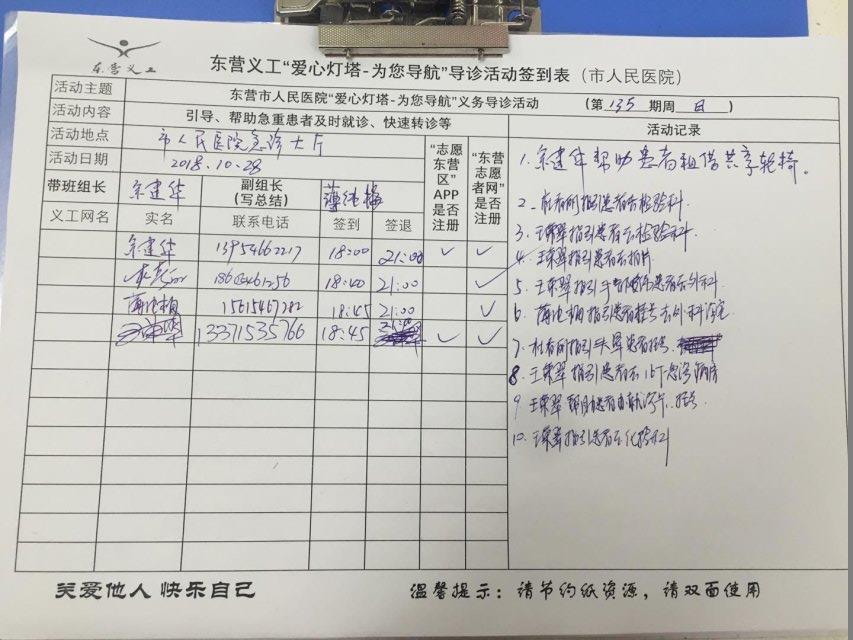 东营义工
东营义工“爱心灯塔-为您导航”导诊活动签到表（市人民医院）
活动主题 东营市人民医院“爱心灯塔-为您导航”义务导诊活动 （第135期周日）
活动内容 引导、帮助急重患者及时就诊、快速转诊等
活动地点 市人民医院急诊大厅
活动日期 2018.10.28
“志愿东营区”APP是否注册
“东营志愿者网”是否注册
活动记录
带班组长 宗建华 副组长（写总结）
义工网名 实名 联系电话 签到 签退
宗建华 13954662217 18:00 21:00 ✓ ✓
18:40 21:00 ✓
15615467282 18:45 21:00 ✓
13371535766 18:45 ✓ ✓
1. 宗建华帮助患者租借共享轮椅。
2. 指引患者去检验科.
3. 王翠翠指引患者去检验科
4. 王翠翠指引患者去拍片
5. 王翠翠指引手 患者去外科
6. 指引患者挂号去外科诊室
7. 指引头晕患者挂号.
8. 王翠翠指引患者去
9. 王翠翠帮助患者办就诊卡.挂号.
10. 王翠翠指引患者去化验科
关爱他人 快乐自己
温馨提示：请节约纸资源，请双面使用